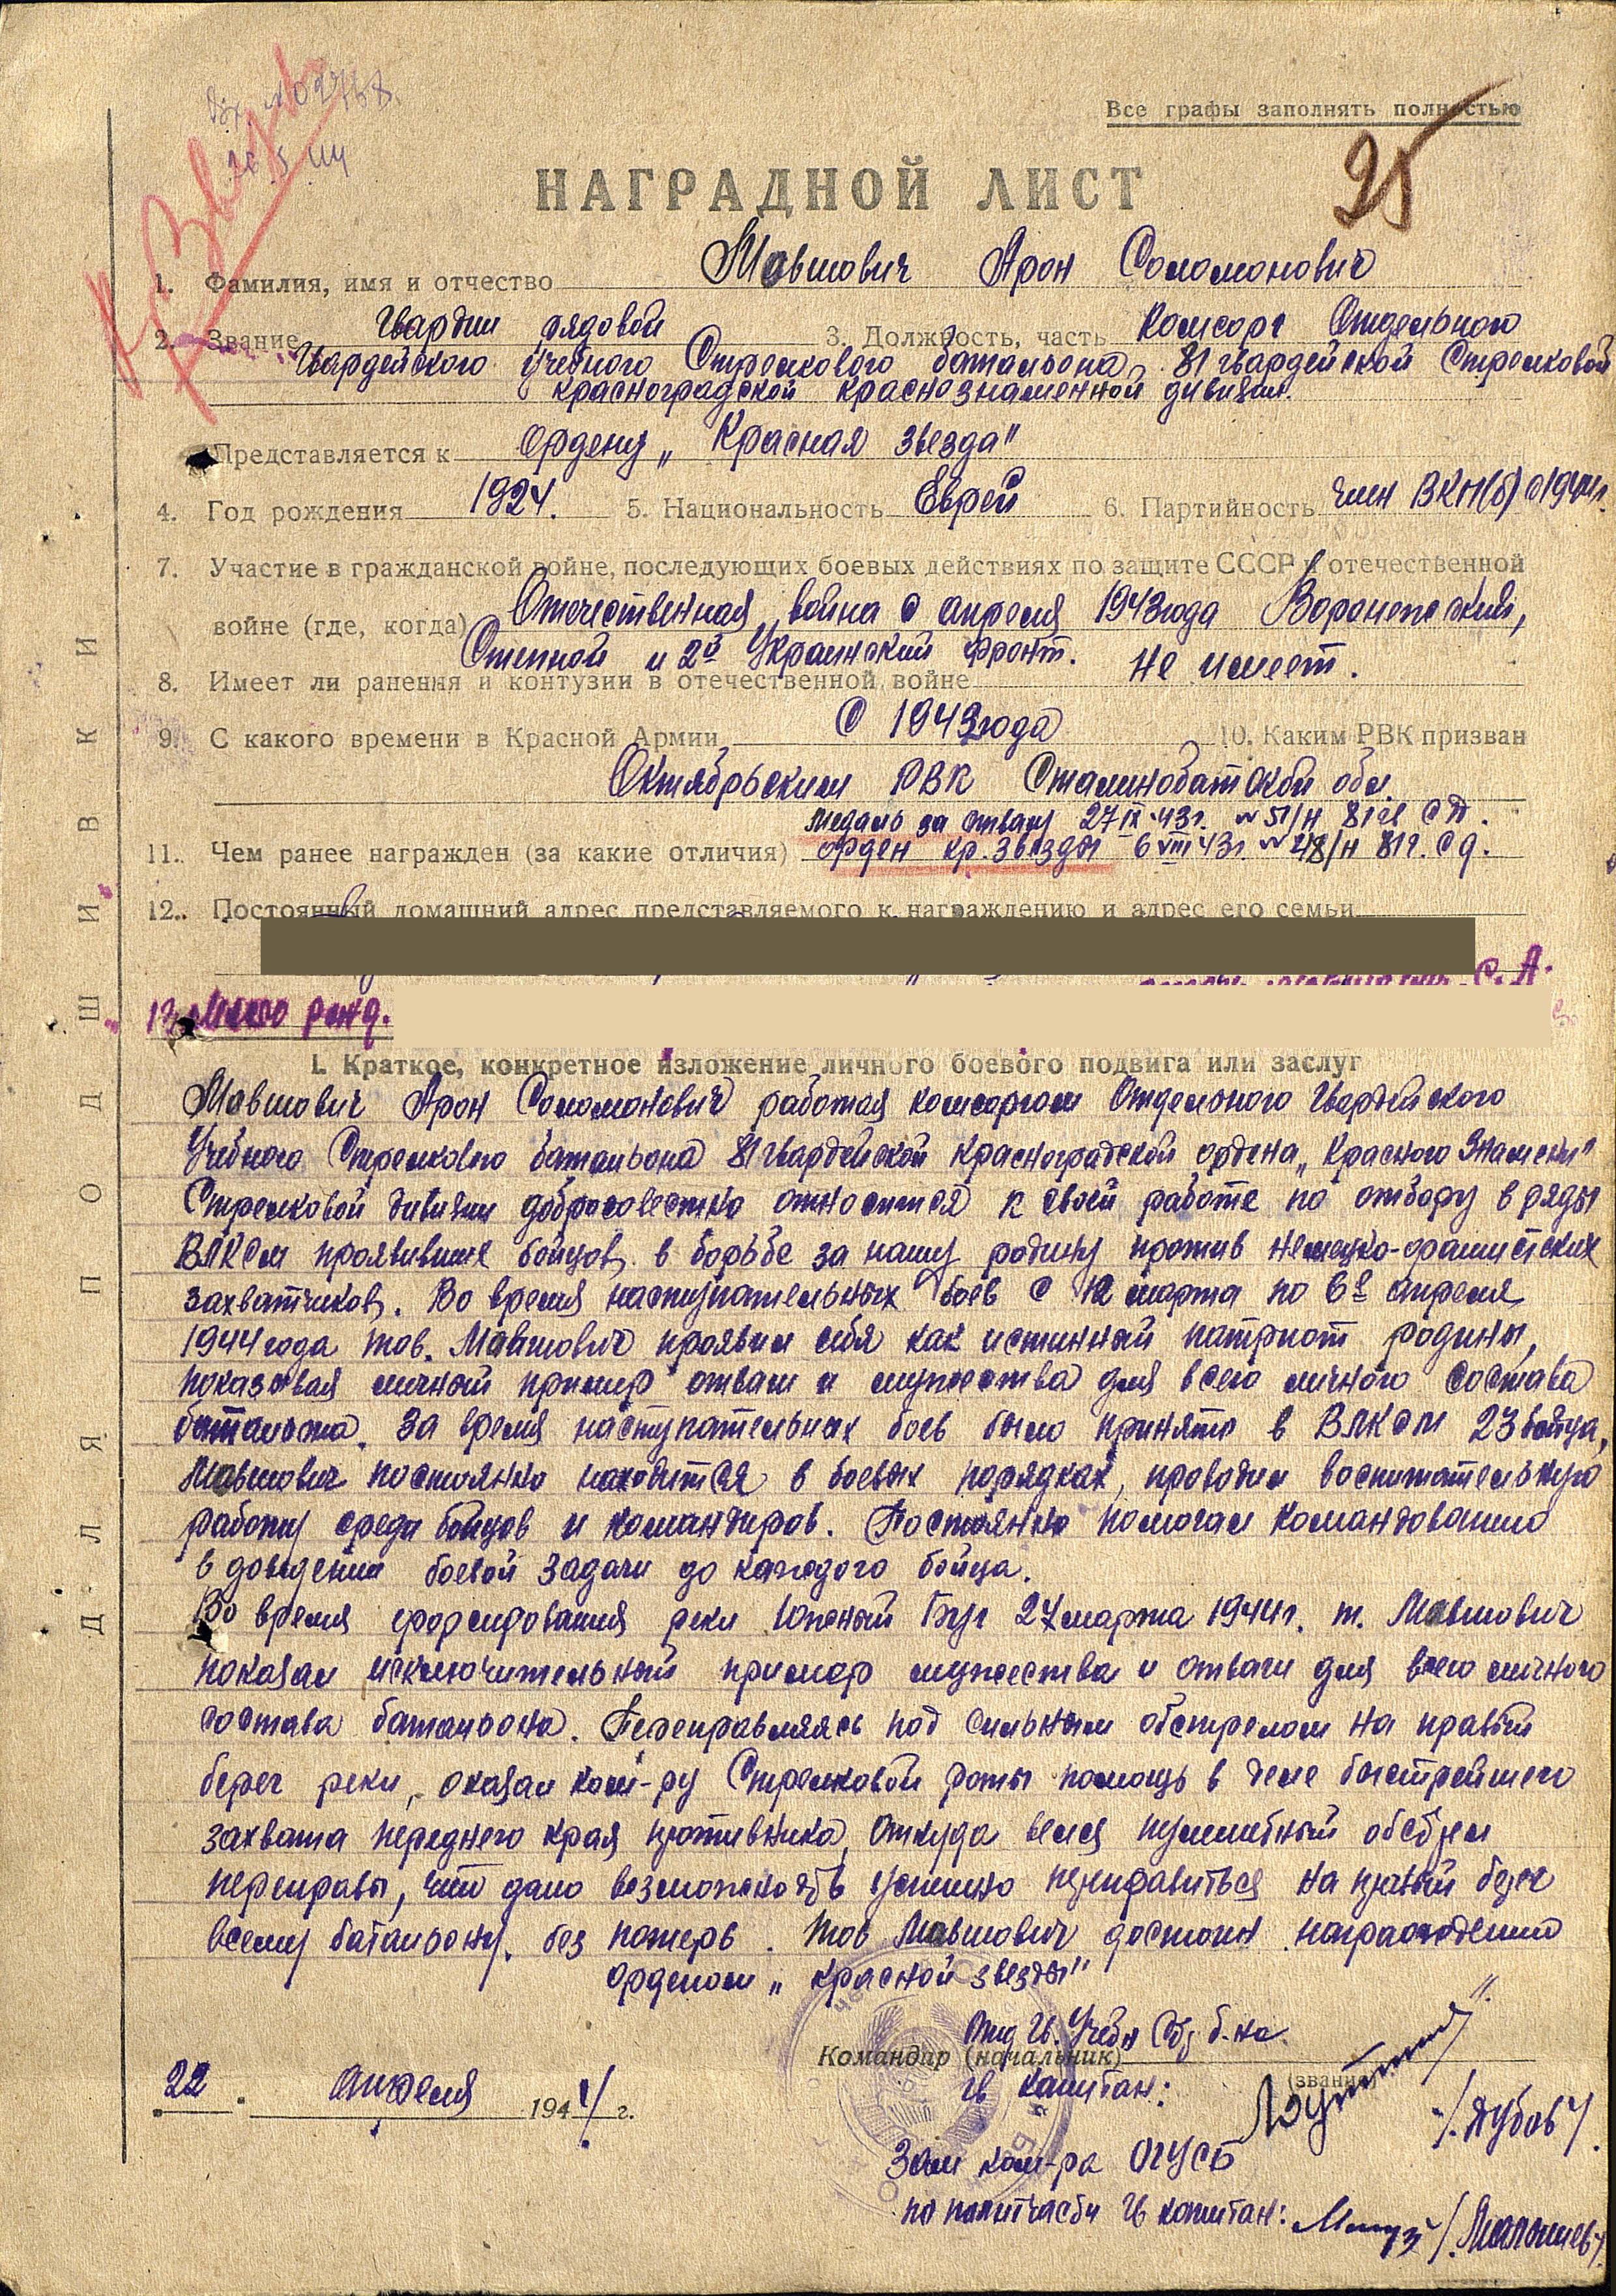 Все графы заполнять полностью
25
НАГРАДНОЙ ЛИСТ
К. Звезда
1. Фамилия, имя и отчество Мавшович Арон Соломонович
2. Звание Гвардии рядовой 3. Должность, часть Комсорг Отдельного
Гвардейского учебного Стрелкового батальона, 81 гвардейской Стрелковой
красноградской краснознаменной дивизии.
Представляется к Ордену „Красная звезда"
4. Год рождения 1924. 5. Национальность Еврей 6. Партийность член ВКП(б) с 1944г.
7. Участие в гражданской войне, последующих боевых действиях по защите СССР и отечественной
войне (где, когда) Отечественная война с апреля 1943года Воронежский,
Степной и 2й Украинский фронт.
8. Имеет ли ранения и контузии в отечественной войне не имеет.
9. С какого времени в Красной Армии С 1943года 10. Каким РВК призван
Октябрьским РВК Сталинобатской обл.
медаль за отвагу 27 IX 43г. № 51/н 81 гв СД.
11. Чем ранее награжден (за какие отличия) орден кр. звезды 6 VIII 43г. № 48/н 81г. сд.
12. Постоянный домашний адрес представляемого к награждению и адрес его семьи
С. А.
13. Место рожд.
I. Краткое, конкретное изложение личного боевого подвига или заслуг
Мавшович Арон Соломонович работая комсоргом Отдельного Гвардейского
Учебного Стрелкового батальона 81 гвардейской Красноградской ордена „Красного Знамени"
Стрелковой дивизии добросовестно относится к своей работе по отбору в ряды
ВЛКСМ проявивших бойцов, в борьбе за нашу родину против немецко-фашистских
захватчиков. Во время наступательных боев с 12 марта по 6е апреля
1944 года тов. Мавшович проявил себя как истинный патриот родины,
показывая личный пример отваги и мужества для всего личного состава
батальона. За время наступательных боев было принято в ВЛКСМ 23 бойца,
Мавшович постоянно находится в боевых порядках, проводил воспитательную
работу среди бойцов и командиров. Постоянно помогал командованию
в доведении боевой задачи до каждого бойца.
Во время форсирования реки Южный Буг 27 марта 1944г. т. Мавшович
показал исключительный пример мужества и отваги для всего личного
состава батальона. Переправляясь под сильным обстрелом на правый
берег реки, оказал ком-ру Стрелковой роты помощь в деле быстрейшего
захвата переднего края противника, откуда велся пулеметный обстрел
переправы, что дало возможность успешно переправиться на правый берег
всему батальону, без потерь. Тов Мавшович достоин награждению
орденом „красной звезды"
Отд Гв. Учебн Стр б-на
Командир (начальник)
(звание)
22 . апреля 1944 г.
Гв капитан: /. Якубов /.
Зам ком-ра ОГУСБ
по политчасти Гв капитан:
ДЛЯ ПОДШИВКИ